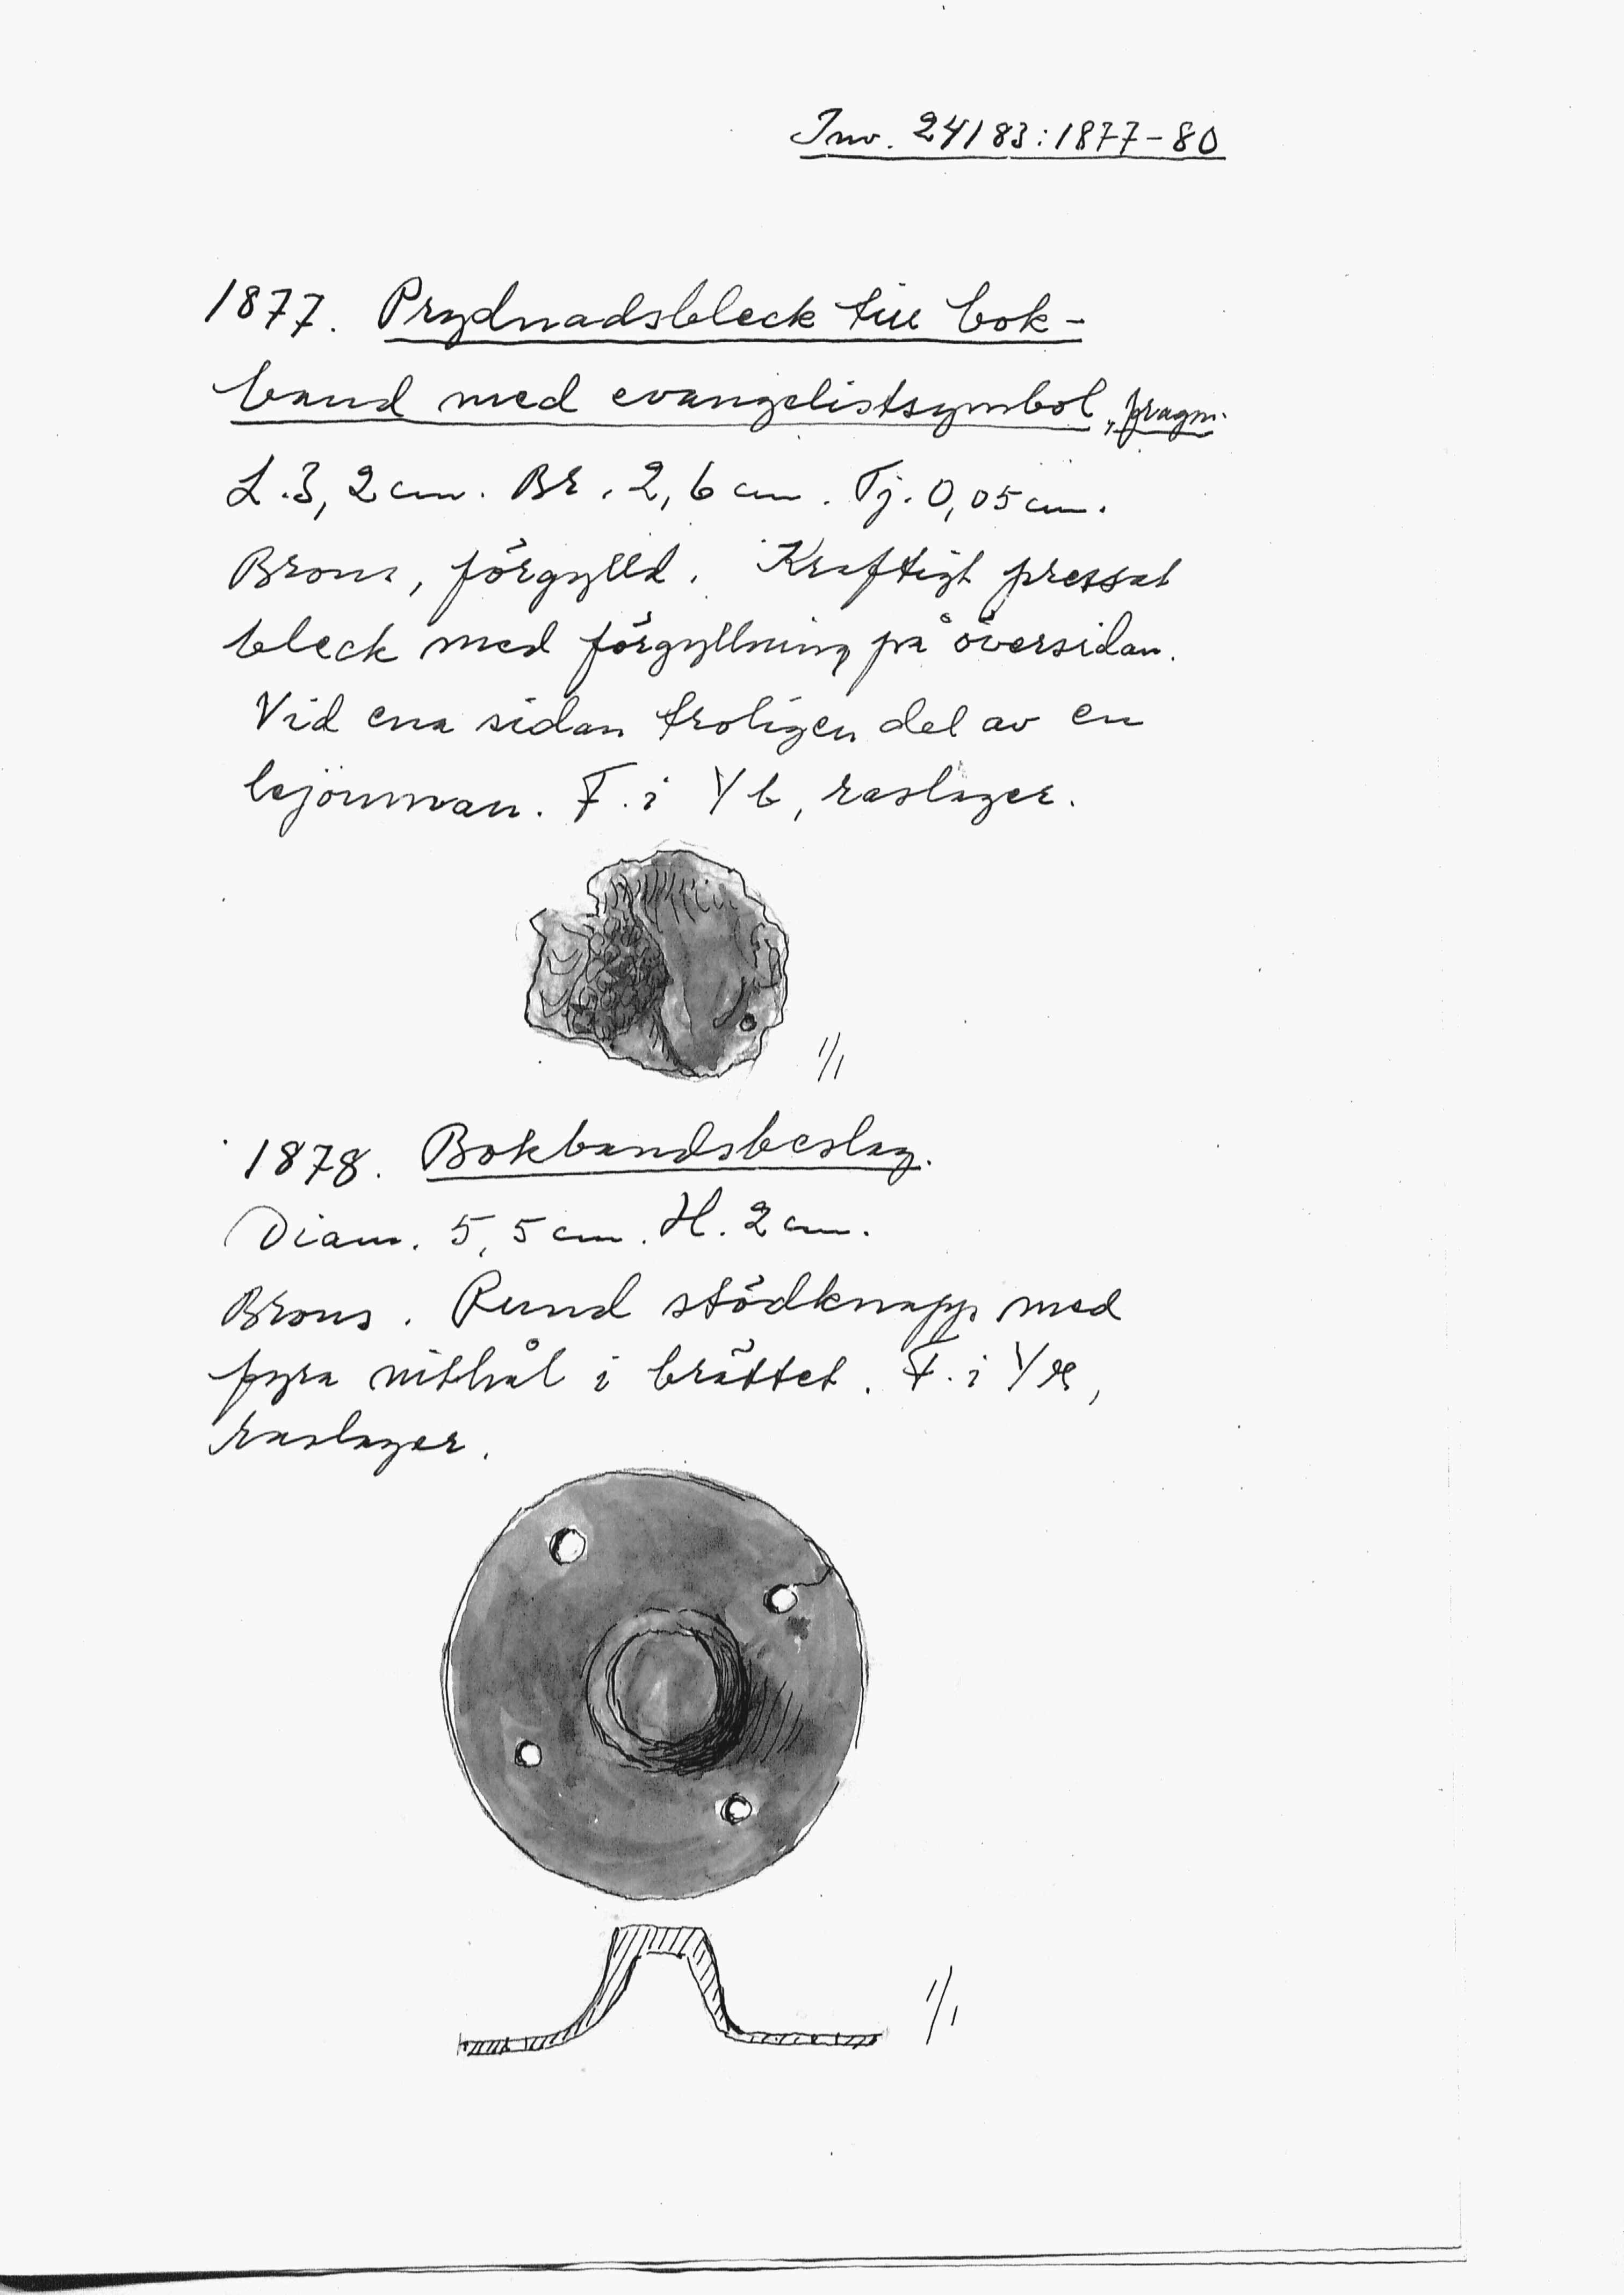 Inv. 24183:1877-80
1877. Prydnadsbleck till bok-
band med evangelistsymbol, fragm.
L. 3,2 cm. Br. 2,6 cm. Tj. 0,05 cm.
Brons, förgylld. Kraftigt pressat
bleck med förgyllning på översidan.
Vid ena sidan troligen del av en
lejonman. F. i Yb, raslager.
1/1
1878. Bokbandsbeslag.
Diam. 5,5 cm. H. 2 cm.
Brons. Rund stödknapp med
fyra nithål i brättet. F. i
raslager.
1/1